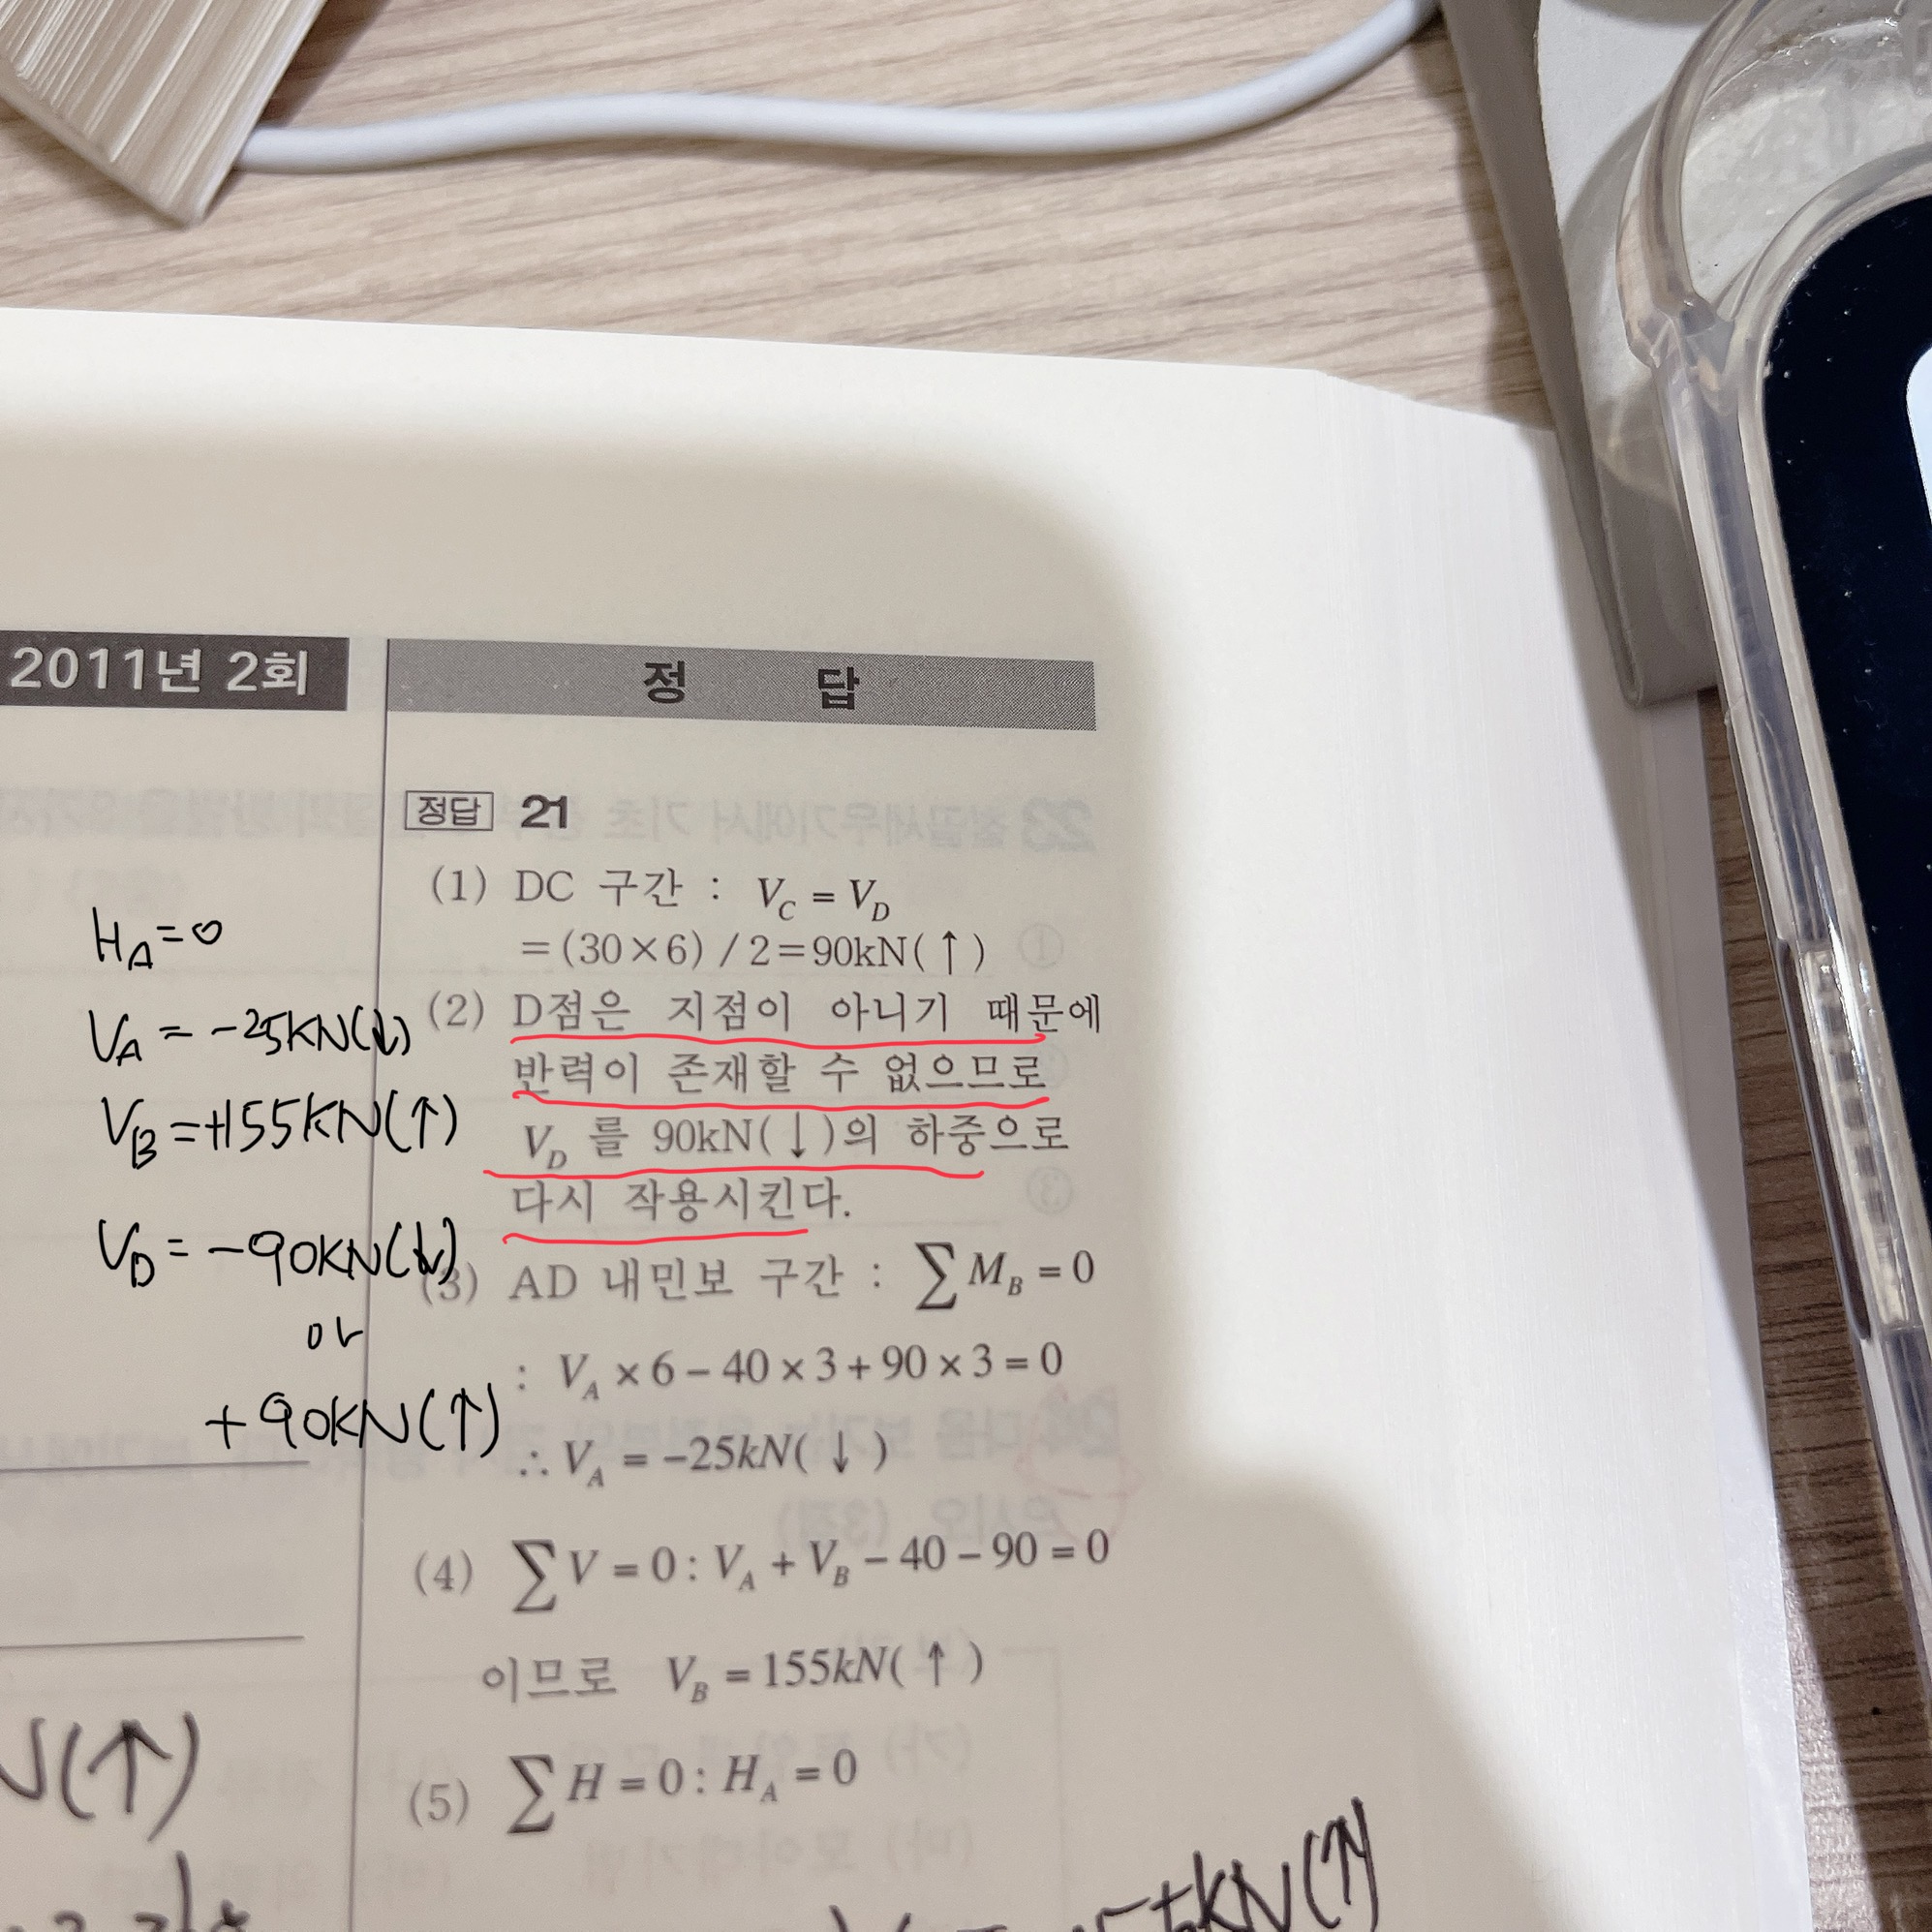 2011년 2회
정 답
정답 21
(1) DC 구간 : V_C = V_D
=(30×6)/2=90kN(↑)
(2) D점은 지점이 아니기 때문에
반력이 존재할 수 없으므로
V_D 를 90kN(↓)의 하중으로
다시 작용시킨다.
(3) AD 내민보 구간 : ∑M_B = 0
: V_A × 6 − 40 × 3 + 90 × 3 = 0
∴ V_A = −25kN(↓)
(4) ∑V = 0 : V_A + V_B − 40 − 90 = 0
이므로 V_B = 155kN(↑)
(5) ∑H = 0 : H_A = 0
H_A = 0
V_A = -25kN(↓)
V_B = +155kN(↑)
V_D = -90kN(↓)
or
+90kN(↑)
N(↑)
kN(↑)